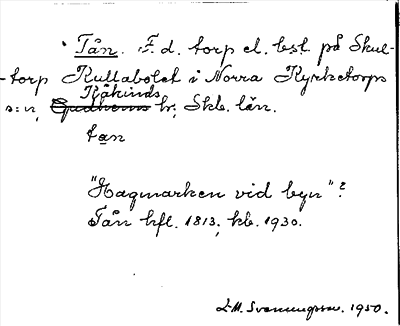 Tån. F. d. torp el. best. på Skul-
torp Kullabolet i Norra Kyrketorps
Kåkinds
s:n, Gudhems hr, Skb. län.
tan
"Hagmarken vid byn"?
Tån hfl. 1813, kb. 1930.
L-M. Svenungsson. 1950.